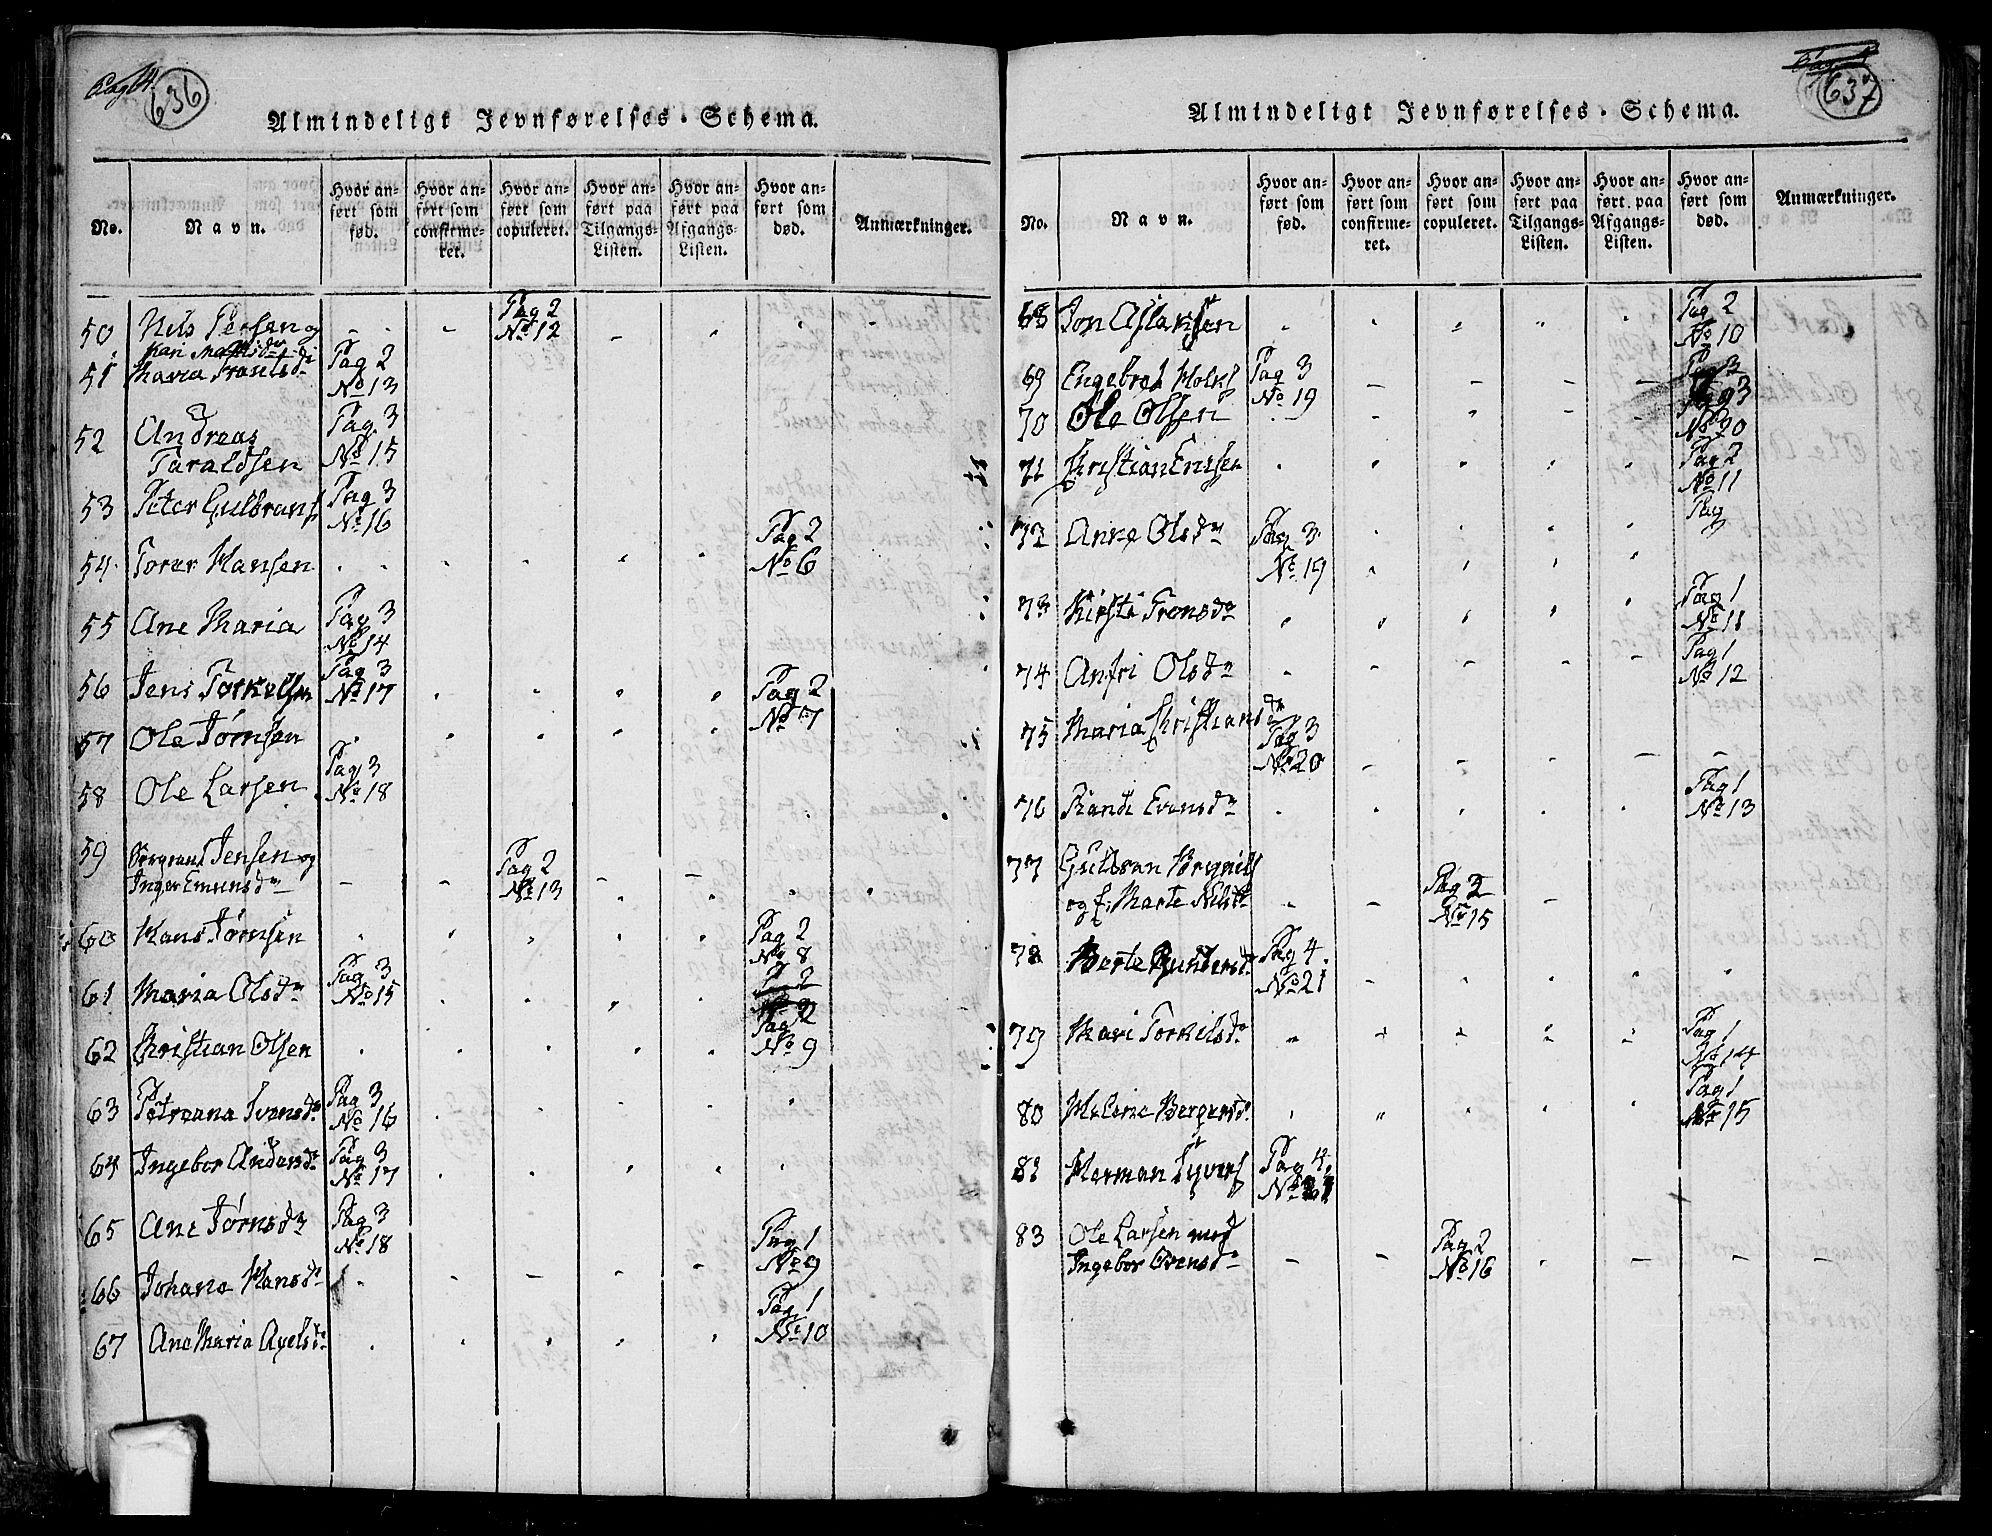 Pag 14
636
Almindeligt Jevnførelses-Schema.
No. Navn. Hvor anført som fød. Hvor anført som confirmeret. Hvor anført som copuleret. Hvor anført paa Tilgangs-Listen. Hvor anført paa Afgangs-Listen. Hvor anført som død. Anmærkninger.
50 Nils Persen og Pag 2 No 12
51 Maria Frantsd Pag 2 No 13
52 Andreas Taraldsen Pag 3 No 15
53 Peter Gulbrans Pag 3 No 16
54 Torer Hansen Pag 2 No 6
55 Ane Maria Pag 3 No 14
56 Jens Torkelsen Pag 3 No 17
57 Ole Jørnsen Pag 2 No 7
58 Ole Larsen Pag 3 No 18
59 Jensen og
Inger Emunsdr Pag 2 No 13
60 Hans Jørnsen Pag 2 No 8
61 Maria Olsdr Pag 3 No 15
62 Christian Olsen Pag 2 No 9
63 Petreana Ivensdr Pag 3 No 16
64 Ingebor Andersdr Pag 3 No 17
65 Ane Jørnsdr Pag 3 No 18
66 Johane Hansdr Pag 1 No 9
67 Ane Maria Axelsdr Pag 1 No 10
637
Almindeligt Jevnførelses-Schema.
No. Navn. Hvor anført som fød. Hvor anført som confirmeret. Hvor anført som copuleret. Hvor anført paa Tilgangs-Listen. Hvor anført paa Afgangs-Listen. Hvor anført som død. Anmærkninger.
68 Jon Aslaksen Pag 2 No 10
69 Engebret Holks Pag 3 No 19
70 Ole Olsen Pag 3 No 20
71 Christian Enersen Pag 2 No 11
Pag
72 Anne Olsdr Pag 3 No 19
73 Kirsti Tronsdr Pag 1 No 11
74 Anfri Olsdr Pag 1 No 12
75 Maria Christiansdr Pag 3 No 20
76 Randi Evensdr Pag 1 No 13
77 Gulbran Brynils
og f. Marte Nilsdr Pag 2 No 15
78 Berte Gundersdr Pag 4 No 21
79 Mari Torkilsdr Pag 1 No 14
80 Melene Bergersdr Pag 1 No 15
82 Herman Syvers Pag 4 No 21
83 Ole Larsen med
Ingebor Evensdr Pag 2 No 16